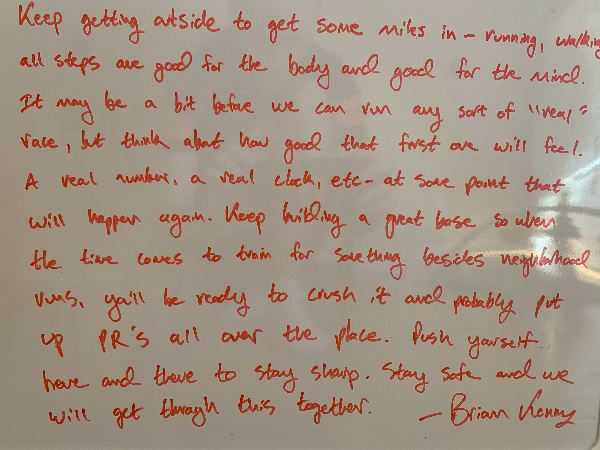 Keep getting outside to get some miles in - running, walking
all steps are good for the body and good for the mind.
It may be a bit before we can run any sort of "real"
race, but think about how good that first one will feel.
A real number, a real clock, etc - at some point that
will happen again. Keep building a great base so when
the time comes to train for something besides neighborhood
runs, you'll be ready to crush it and probably put
up PR's all over the place. Push yourself
here and there to stay sharp. Stay safe and we
will get through this together. - Brian Kenny